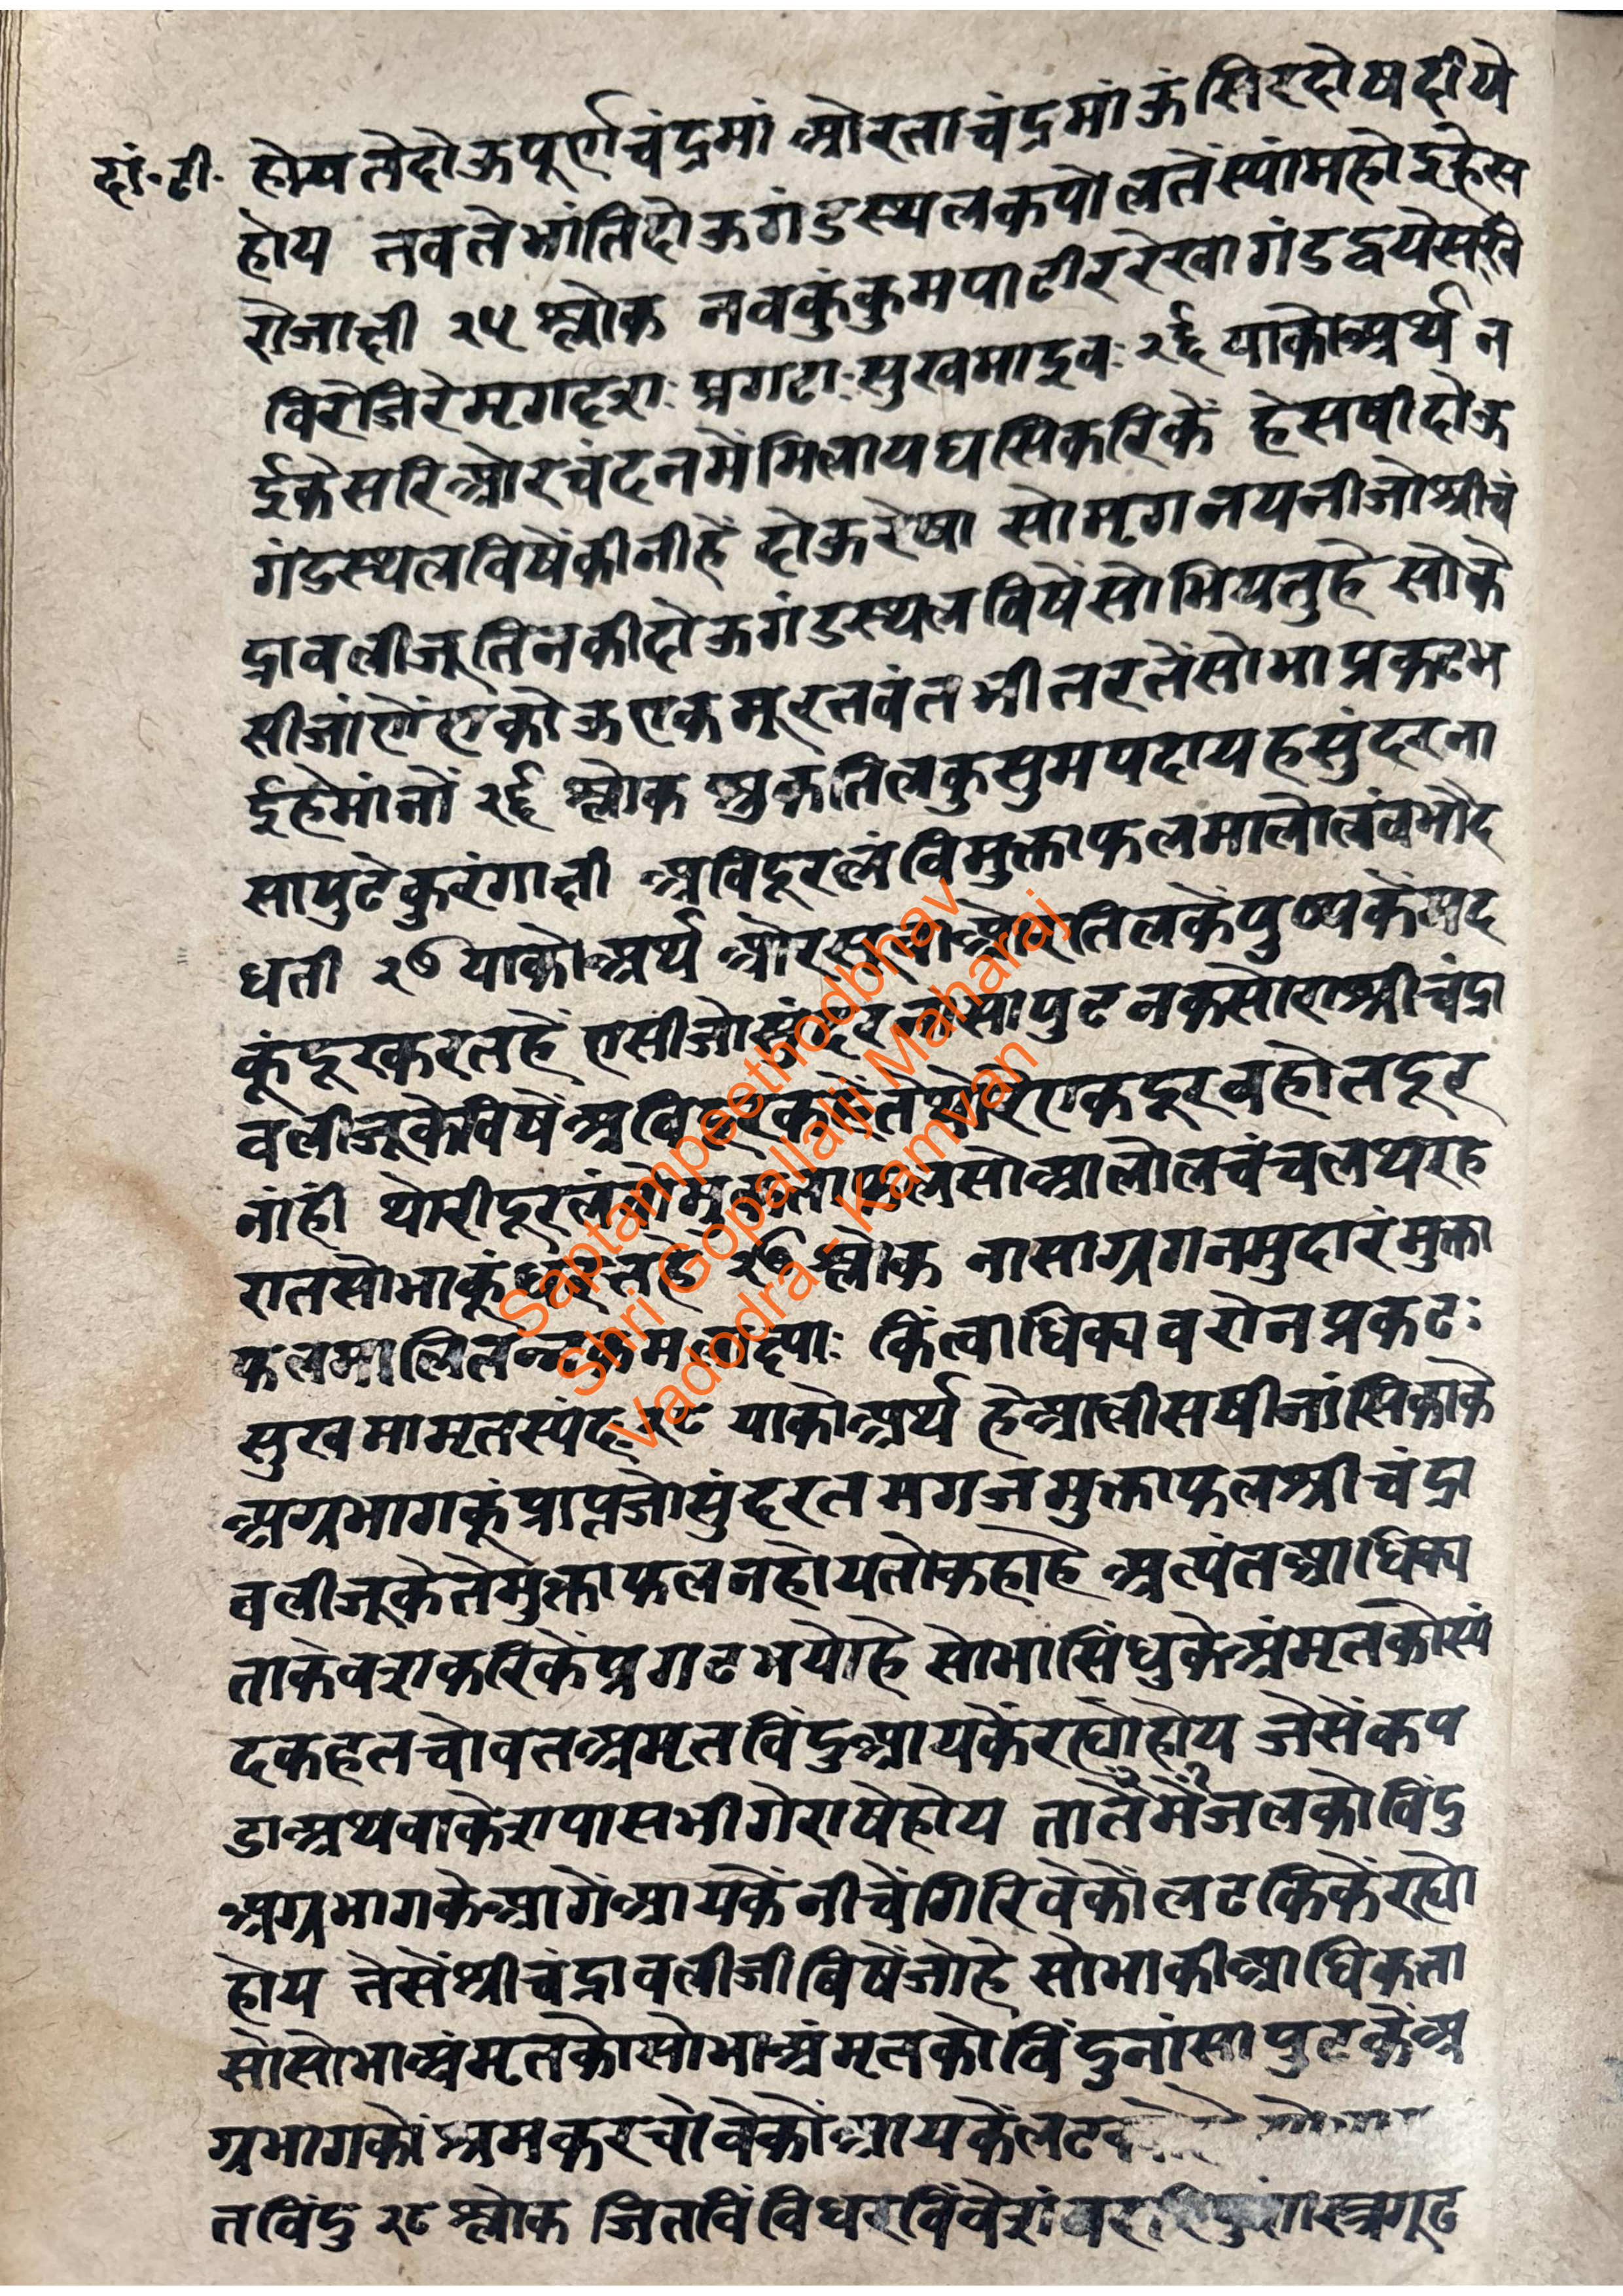 दां.टी.
होय तेदोऊपूर्णचंद्रमां ओरताचंद्रमांऊसिरदोषदीये
होय तवतेभांतिदोऊगंडस्थलकपोलतेंस्यांमहोइहेस
रोजाक्षी २५ श्लोक नवकुंकुमपाटीररेखागंडद्वयेसखि
विरेजिरेमृगदृशः प्रगटाःसुखमाइव २६ याकोअर्थ न
ईकेसरिओरचंदनमेंमिलायघसिकरिकें हेसषीदोऊ
गंडस्थलविषेंकीनीहें दोऊरेषा सोमृगनयनीजोश्रीचं
द्रावलीजूतिनकीदोऊगंडस्थलविषेंसोभियतुहे सोके
सीजांणेंएकोऊएकमूरतवंतभीतरतेंसोभाप्रकटभ
ईहेमांनों २६ श्लोक शुकतिलकुसुमपदायहसुंदरना
सापुटेकुरंगाक्षी अविदूरलंविमुक्ताफलमालोलंवभौद
धती २७ याकोअर्थ ओरसूवाओरतिलकेपुष्पकेमद
कूंदूरकरतहें एसीजोसुंदरनासापुटनकसोराश्रीचंद्रा
वलीजूकेविषेंअविदूरकहेंतेथोरेएकदूरवहोतदूर
नांही थोरीदूरलंवोमुक्ताफलसोआलोलचंचलथरह
रातसोभाकूंधरतहे २७ श्लोक नासाग्रगतमुदारंमुक्ता
फलमालितन्नकमलाक्ष्याः किंत्वाधिक्यवशेनप्रकटः
सुखमामृतस्पंदः २८ याकोअर्थ हेआलीसषीनांसिकाके
अग्रभागकूंप्राप्तजोसुंदरतमगजमुक्ताफलश्रीचंद्रा
वलीजूकेतेमुक्ताफलनहोयतोकहाहे अत्यंतआधिक्य
ताकेवशकरिकेंप्रगटभयोहे सोभासिंधुकेअंमृतकोस्पं
दकहतचोवतअमृतविंदुआयकेंरह्योहोय जेसेंकप
डाअथवाकेशपासभीगेराषेहोय तातेंमेंजलकोविंदु
अग्रभागकेआगेंआयकेंनीचेंगिरिवेकोंलटकिकेंरह्यो
होय तेसेंश्रीचंद्रावलीजीविषेंजोहे सोभाकीआधिकता
सोसोभाअंमृतकोसोभाअंमृतकोविंदुनांसापुटकेंअ
ग्रभागकों श्रमकरचोवेकोंआयकेंलट
तविंदु २८ श्लोक जितविंविधरविंवेशं